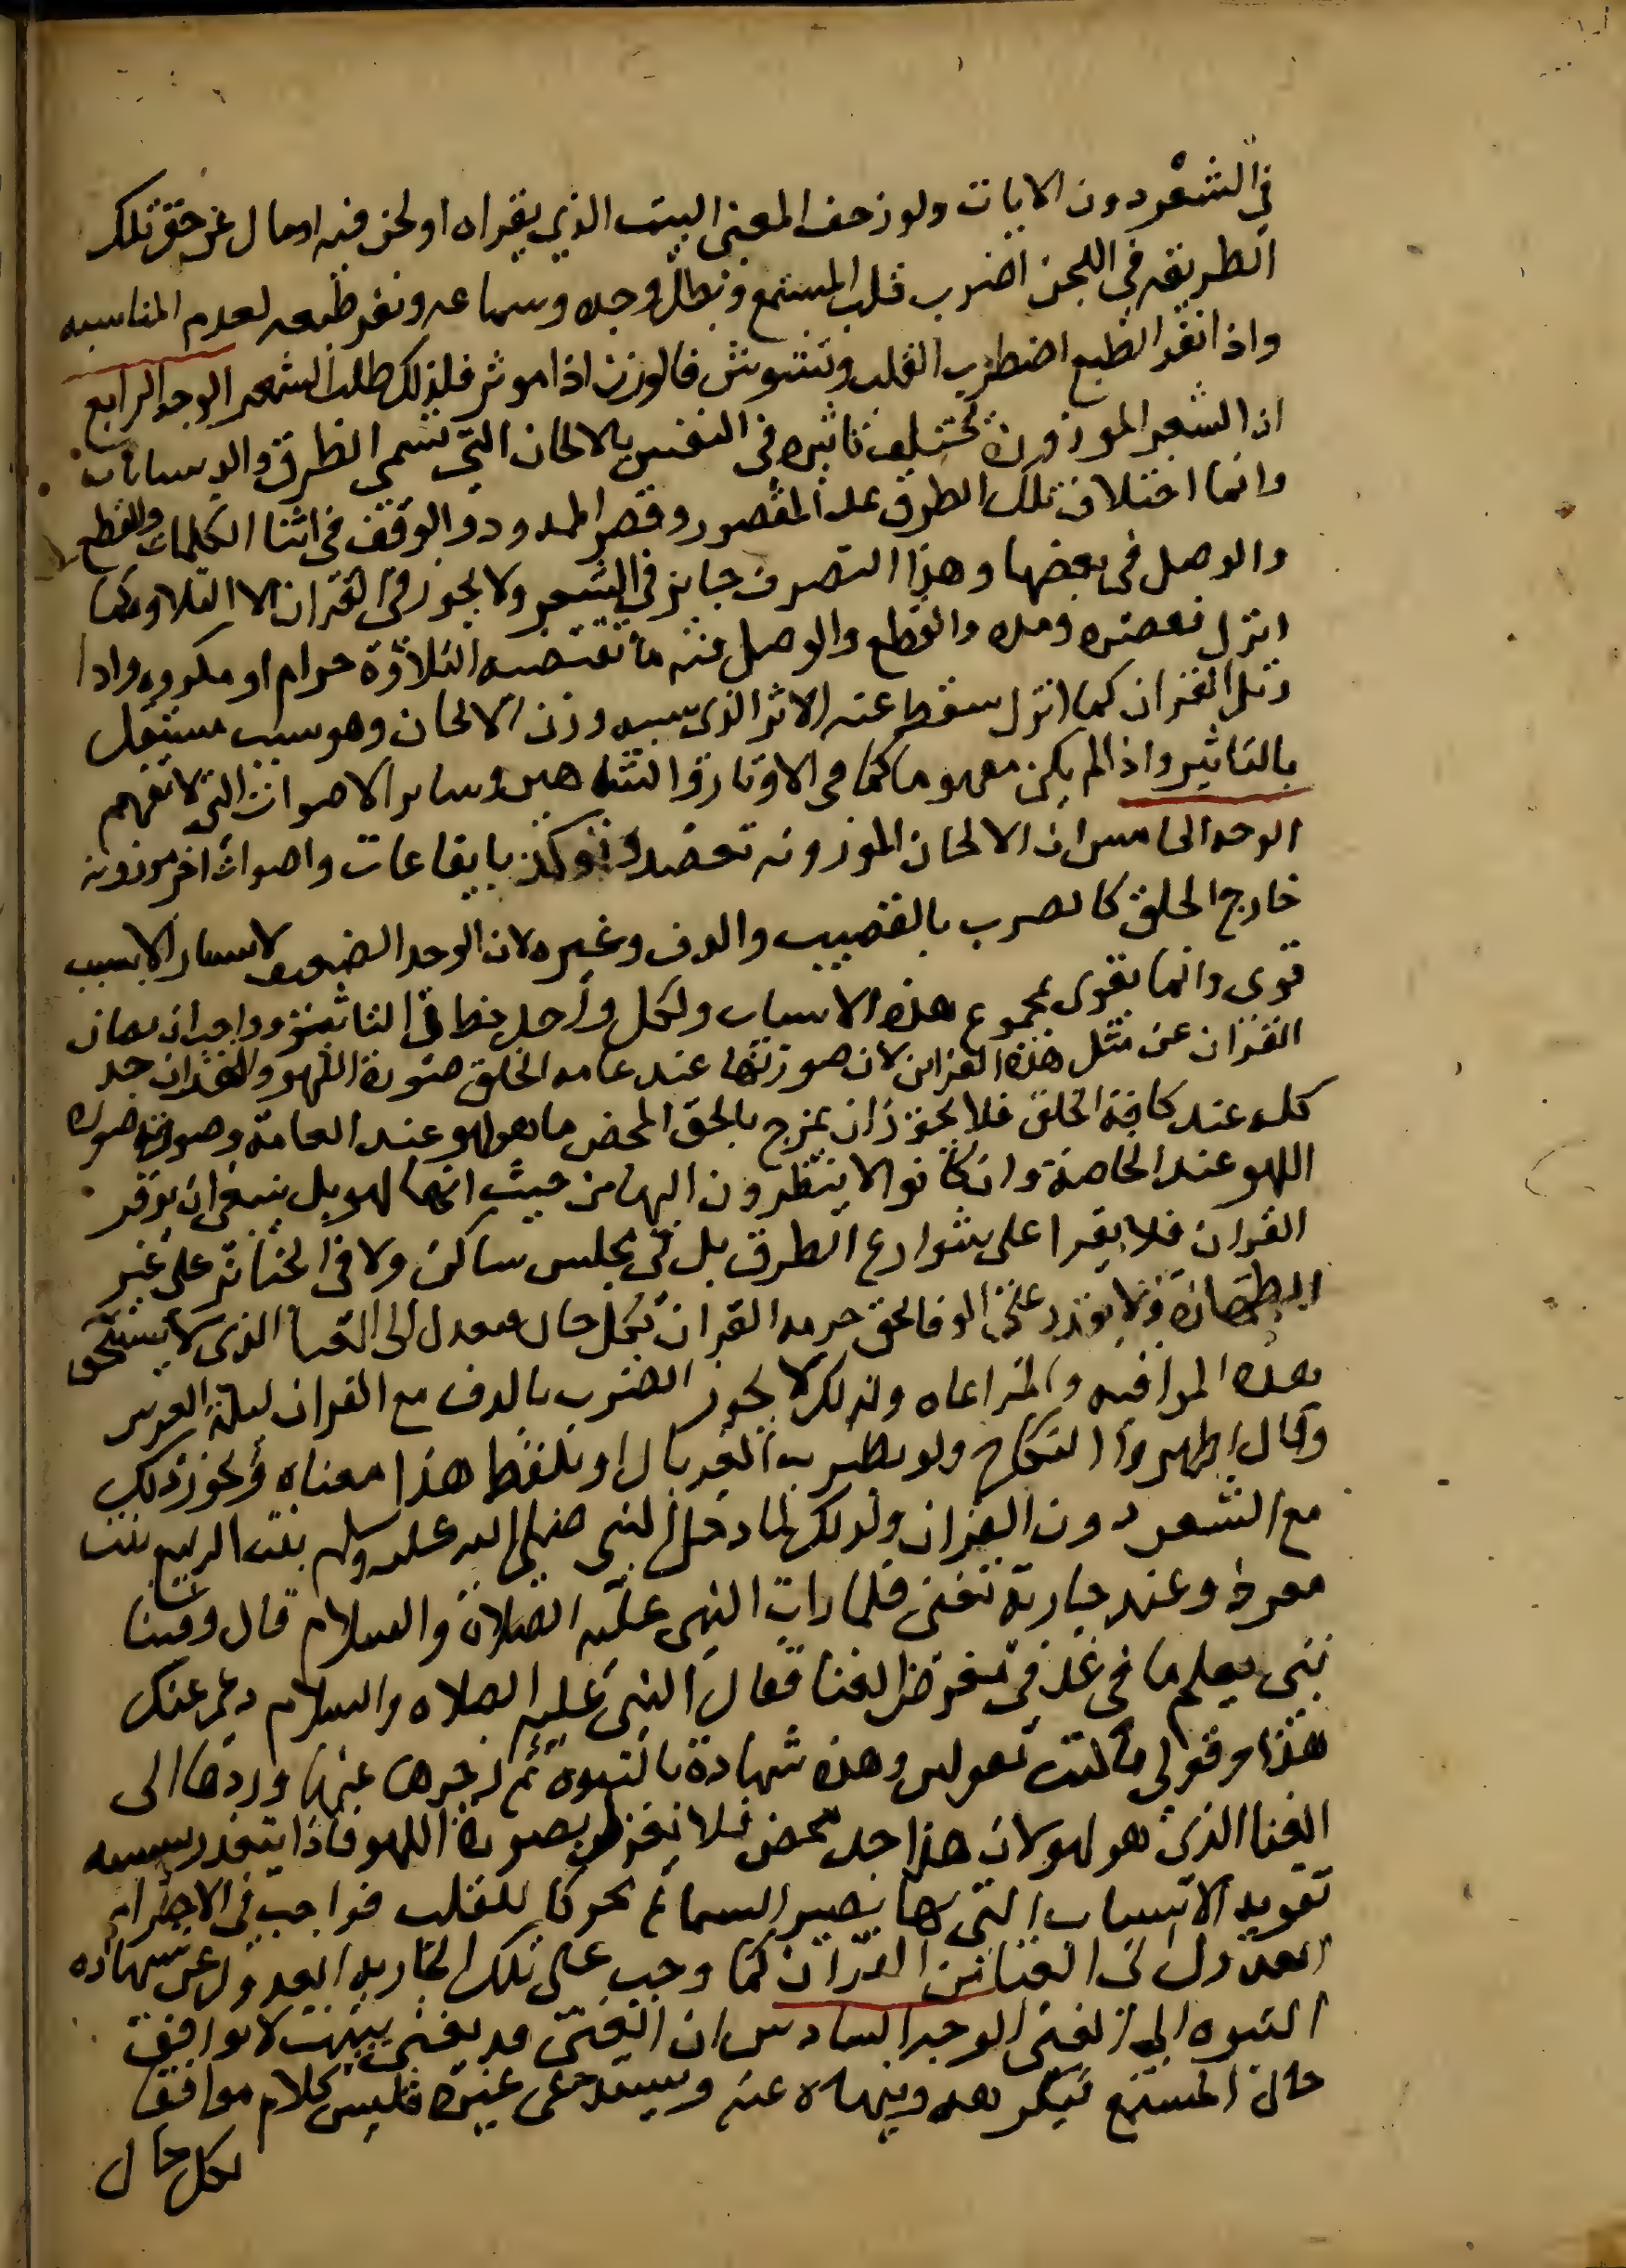 في الشعر دون الايات ولو زحف المعنى البيت الذي يقراه او لحن فيه او مال عن حق تلك
الطريقه في اللحن اضرب قلب المستمع وبطل وجده وسماعه ونفر طبعه لعدم المناسبه
واذا نفر الطبع اضطرب القلب وتشوش فالوزن اذا موثر فلذلك طلب الشعر الوجه الرابع
ان الشعر الموزون تختلف تاثيره في النفس بالالحان التي تسمى الطرق والدستانات
وانما اختلاف تلك الطرق بمد المقصور وقصر الممدود والوقف في اثنا الكلمات والقطع
والوصل في بعضها وهذا التصرف جايز في الشعر ولا يجوز في القران الا التلاوه كما
انزل فقصره ومده والقطع والوصل فيه ما تقتضيه التلاوة حرام او مكروه واذا
رتل القران كما انزل سقط عنه الاثر الذي سببه وزن الالحان وهو سبب مستقل
بالتاثير واذا لم يكن مفهوما كما في الاوتار والشاهين وساير الاصوات التي لا تفهم
الوجه الخامس ان الالحان الموزونه تعضد وتوكد بايقاعات واصوات اخر موزونه
خارج الحلق كالضرب بالقضيب والدف وغيره لان الوجد الضعيف لا يستثار الا بسبب
قوي وانما يقوى بمجموع هذه الاسباب ولكل واحد حظا في التاثير وواجب ان يصان
القران عن مثل هذه القراين لان صورتها عند عامه الخلق صورة اللهو والقران جد
كله عند كافة الخلق فلا يجوز ان يمزج بالحق المحض ما هو لهو عند العامة وصورته صورة
اللهو عند الخاصة وان كانوا لا ينظرون اليها من حيث انها لهو بل ينبغي ان يوقر
القران فلا يقرا على شوارع الطرق بل في مجلس ساكن ولا في الجنابة على غير
الطهارة ولا يقدر على الوفا بحق حرمه القران بكل حال فيعدل الى الغنا الذي لا يستحق
هذه المراقبه والمراعاه ولذلك لا يجوز الضرب بالدف مع القران ليلة العرس
وقال اظهروا النكاح ولو بضرب الغربال او بلفظ هذا معناه ويجوز ذلك
مع الشعر دون القران ولذلك لما دخل النبي صلى الله عليه وسلم بيت الربيع بنت
معوذ وعندها جارية تغني فلما رات النبي عليه الصلاة والسلام قال وفينا
نبي يعلم ما في غد في معرض الغنا فقال النبي عليه الصلاه والسلام دعي عنك
هذا وقولي ما كنت تقولين وهذه شهادة بالنبوه ثم زجرها عنها وردها الى
الغنا الذي هو لهو لان هذا جد محض فلا يقرن بصورة اللهو فاذا يتعذر بسببه
تقويه الاسباب التي بها يصير السماع محركا للقلب فواجب في الاحترام
العدول الى الغنا من القران كما وجب على تلك الجاريه العدول عن شهاده
النبوه الى الغنى الوجه السادس ان الغنى قد يغني ببيت لا يوافق
حال المستمع فيكرهه وينهاه عنه ويستدعي غيره فليس كلام موافقا
لكل حال